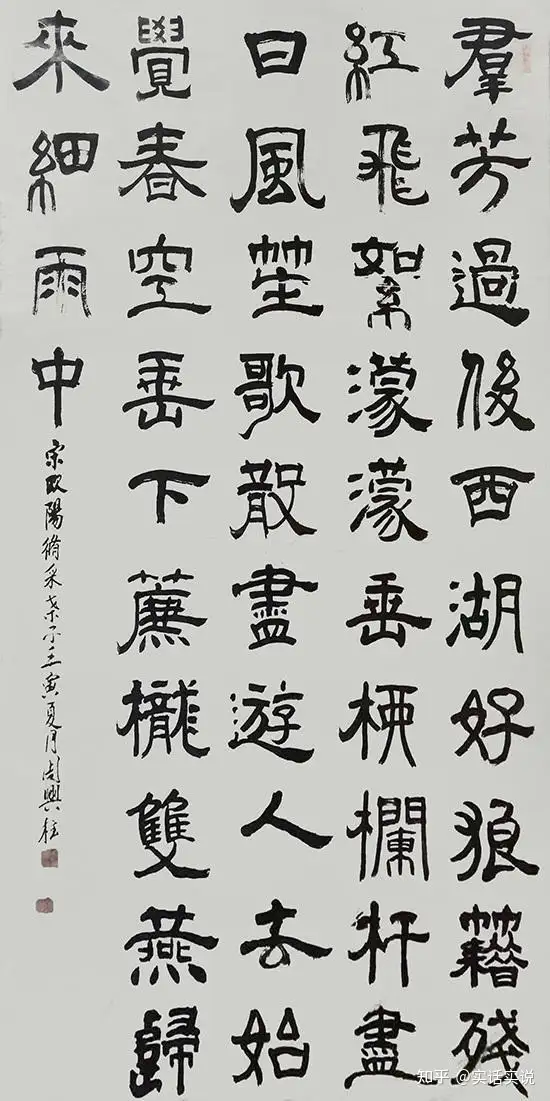 羣芳過後西湖好狼籍殘
紅飛絮濛濛垂柳欄杆盡
日風笙歌散盡遊人去始
覺春空垂下簾櫳雙燕歸
來細雨中
宋歐陽脩采桑子壬寅夏月周興柱
知乎 @实话实说